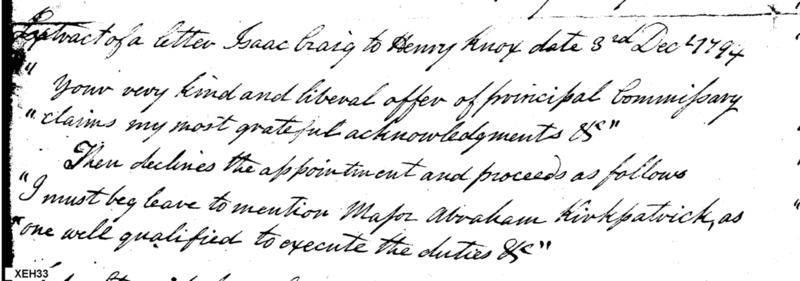 Extract of a letter Isaac Craig to Henry Knox date 3rd Decr 1794
"
Your very kind and liberal offer of principal Commissary
"claims my most grateful acknowledgments &c"
Then declines the appointment and proceeds as follows
"I must beg leave to mention Major Abraham Kirkpatrick, as
"one well qualified to execute the duties &c"
XEH33